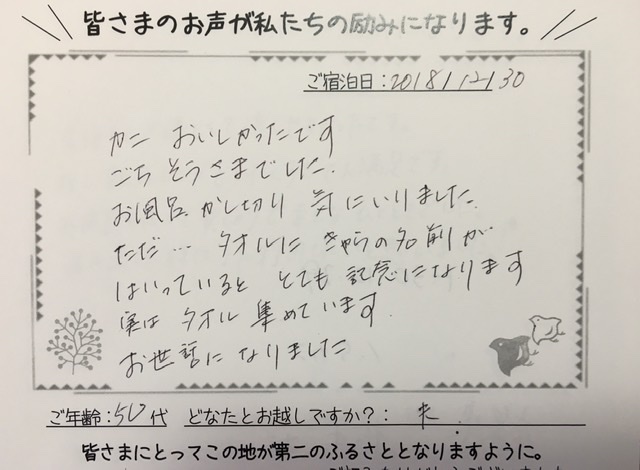 皆さまのお声が私たちの励みになります。
ご宿泊日：2018/12/30
カニ おいしかったです
ごちそうさまでした.
お風呂 かし切り 気にいりました.
ただ… タオルに きゃらの名前が
はいっていると とても 記念になります
実は タオル 集めています.
お世話に なりました
ご年齢：50代 どなたとお越しですか？：
皆さまにとってこの地が第二のふるさととなりますように。